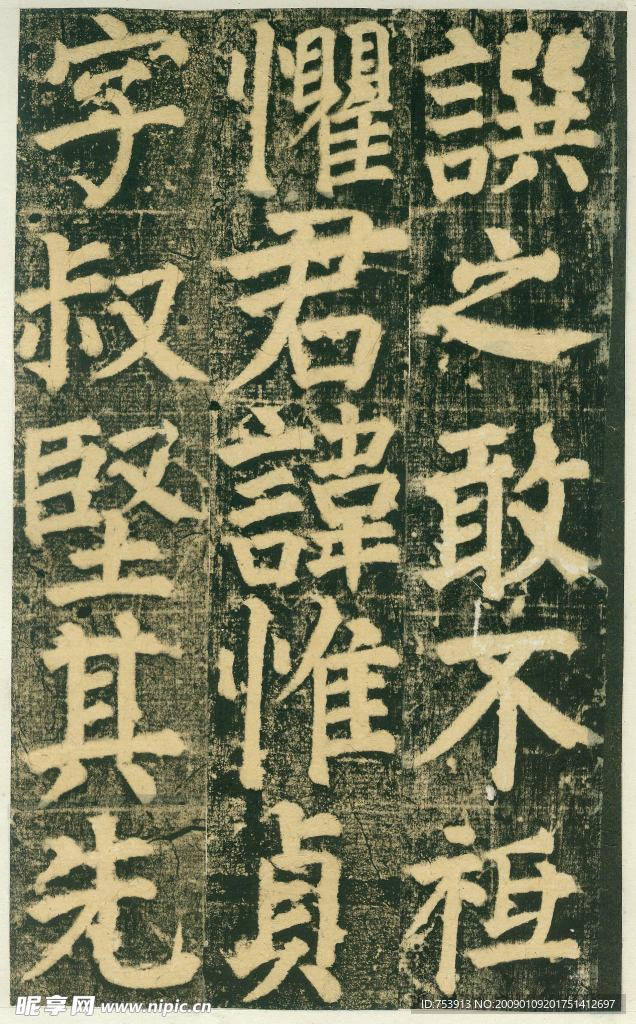 譔之敢不祗
懼君諱惟貞
字叔堅其先
昵享网 www.nipic.cn
ID:753913 NO:20090109201751412697